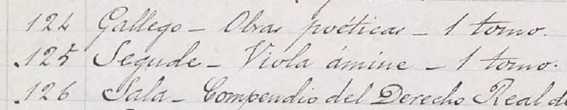 124 Gallego - Obras poéticas - 1 tomo.
125 Segude - Viola ámine - 1 tomo.
126 Sala - Compendio del Derecho Real de